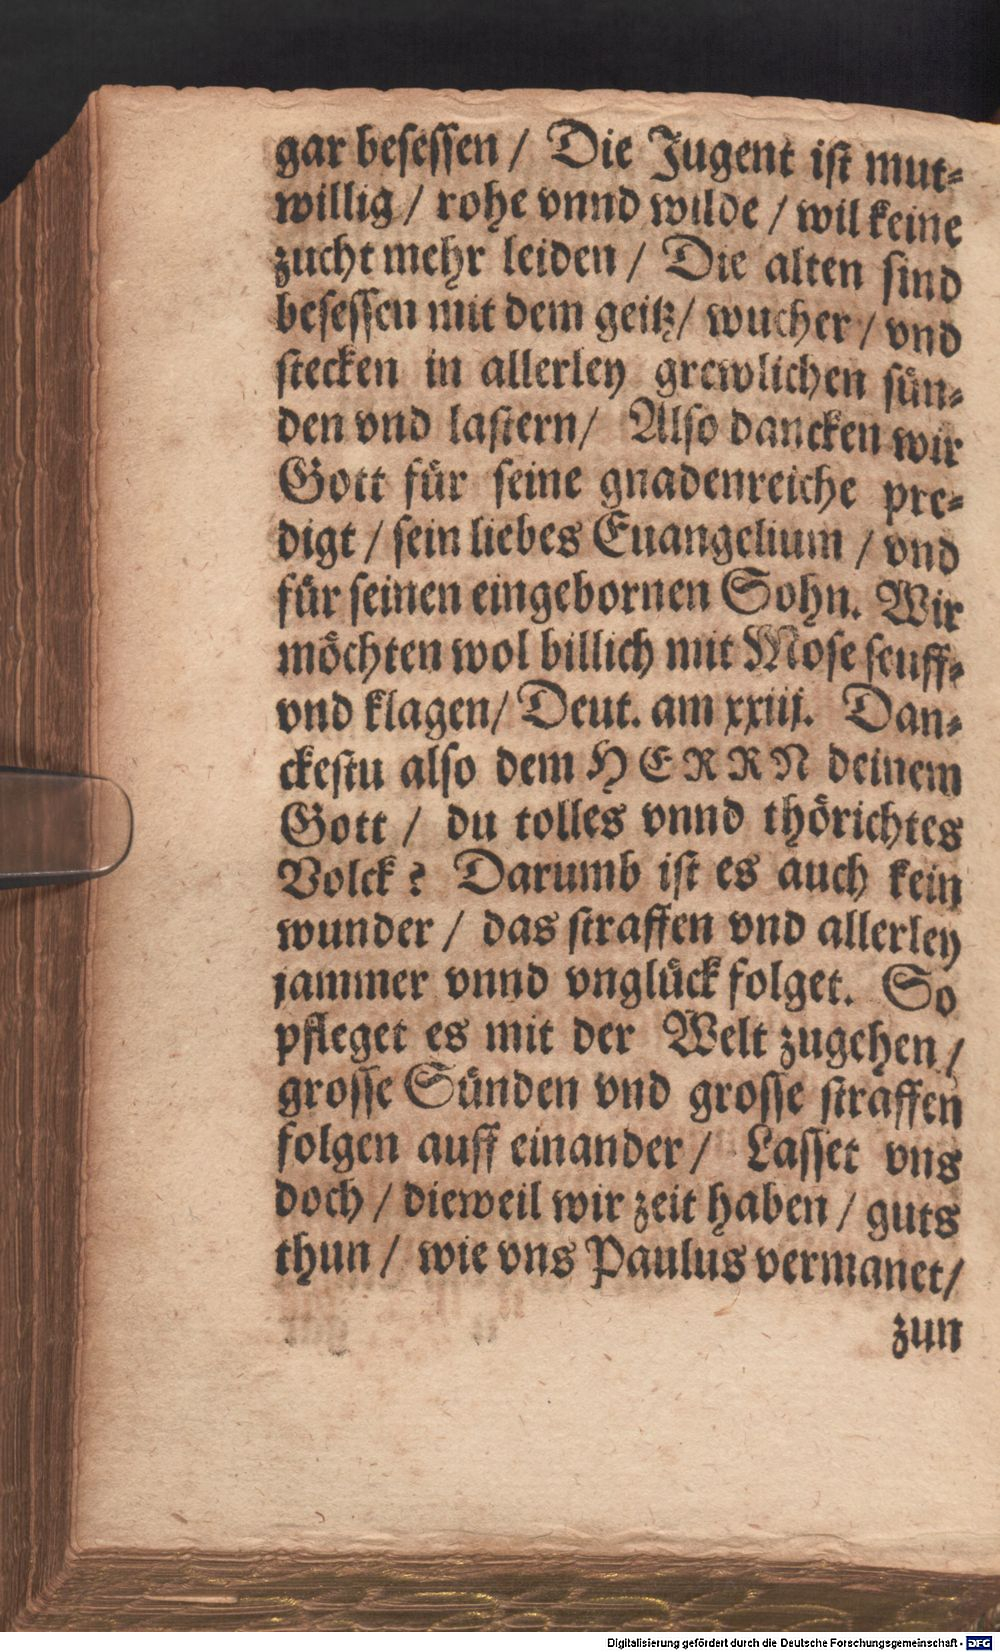 gar besessen / Die Jugent ist mut-
willig / rohe vnnd wilde / wil keine
zucht mehr leiden / Die alten sind
besessen mit dem geitz / wucher / vnd
stecken in allerley grewlichen sün-
den vnd lastern / Also dancken wir
Gott für seine gnadenreiche pre-
digt / sein liebes Euangelium / vnd
für seinen eingebornen Sohn. Wir
möchten wol billich mit Mose seuff-
vnd klagen / Deut. am xxiij. Dan-
ckestu also dem HERRN deinem
Gott / du tolles vnnd thörichtes
Volck? Darumb ist es auch kein
wunder / das straffen vnd allerley
jammer vnnd vnglück folget. So
pfleget es mit der Welt zugehen /
grosse Sünden vnd grosse straffen
folgen auff einander / Lasset vns
doch / dieweil wir zeit haben / guts
thun / wie vns Paulus vermanet /
zun
Digitalisierung gefördert durch die Deutsche Forschungsgemeinschaft - DFG